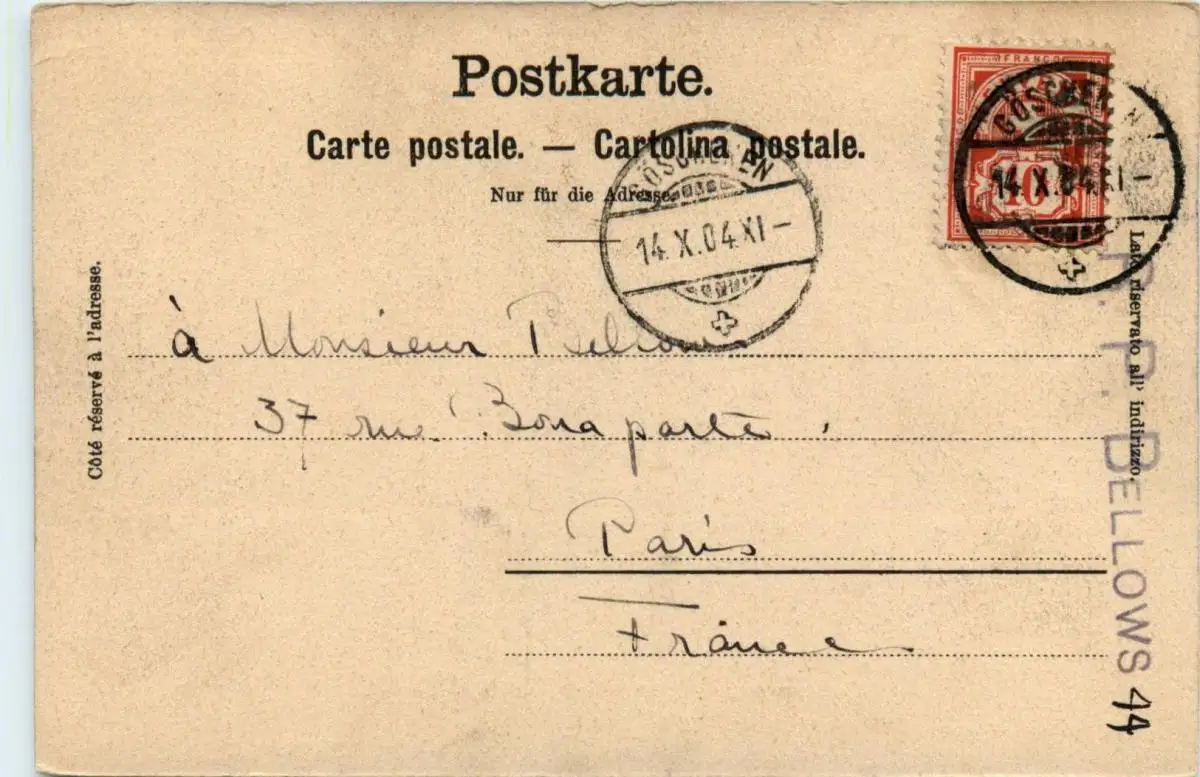 Postkarte.
Carte postale. — Cartolina postale.
Nur für die Adresse.
FRANCO
10
GÖSCHENEN
14.X.04.XI–
GÖSCHENEN
14.X.04.XI–
Côté réservé à l'adresse.
Lato riservato all' indirizzo.
à Monsieur
37 rue Bonaparte
Paris
France
P. BELLOWS